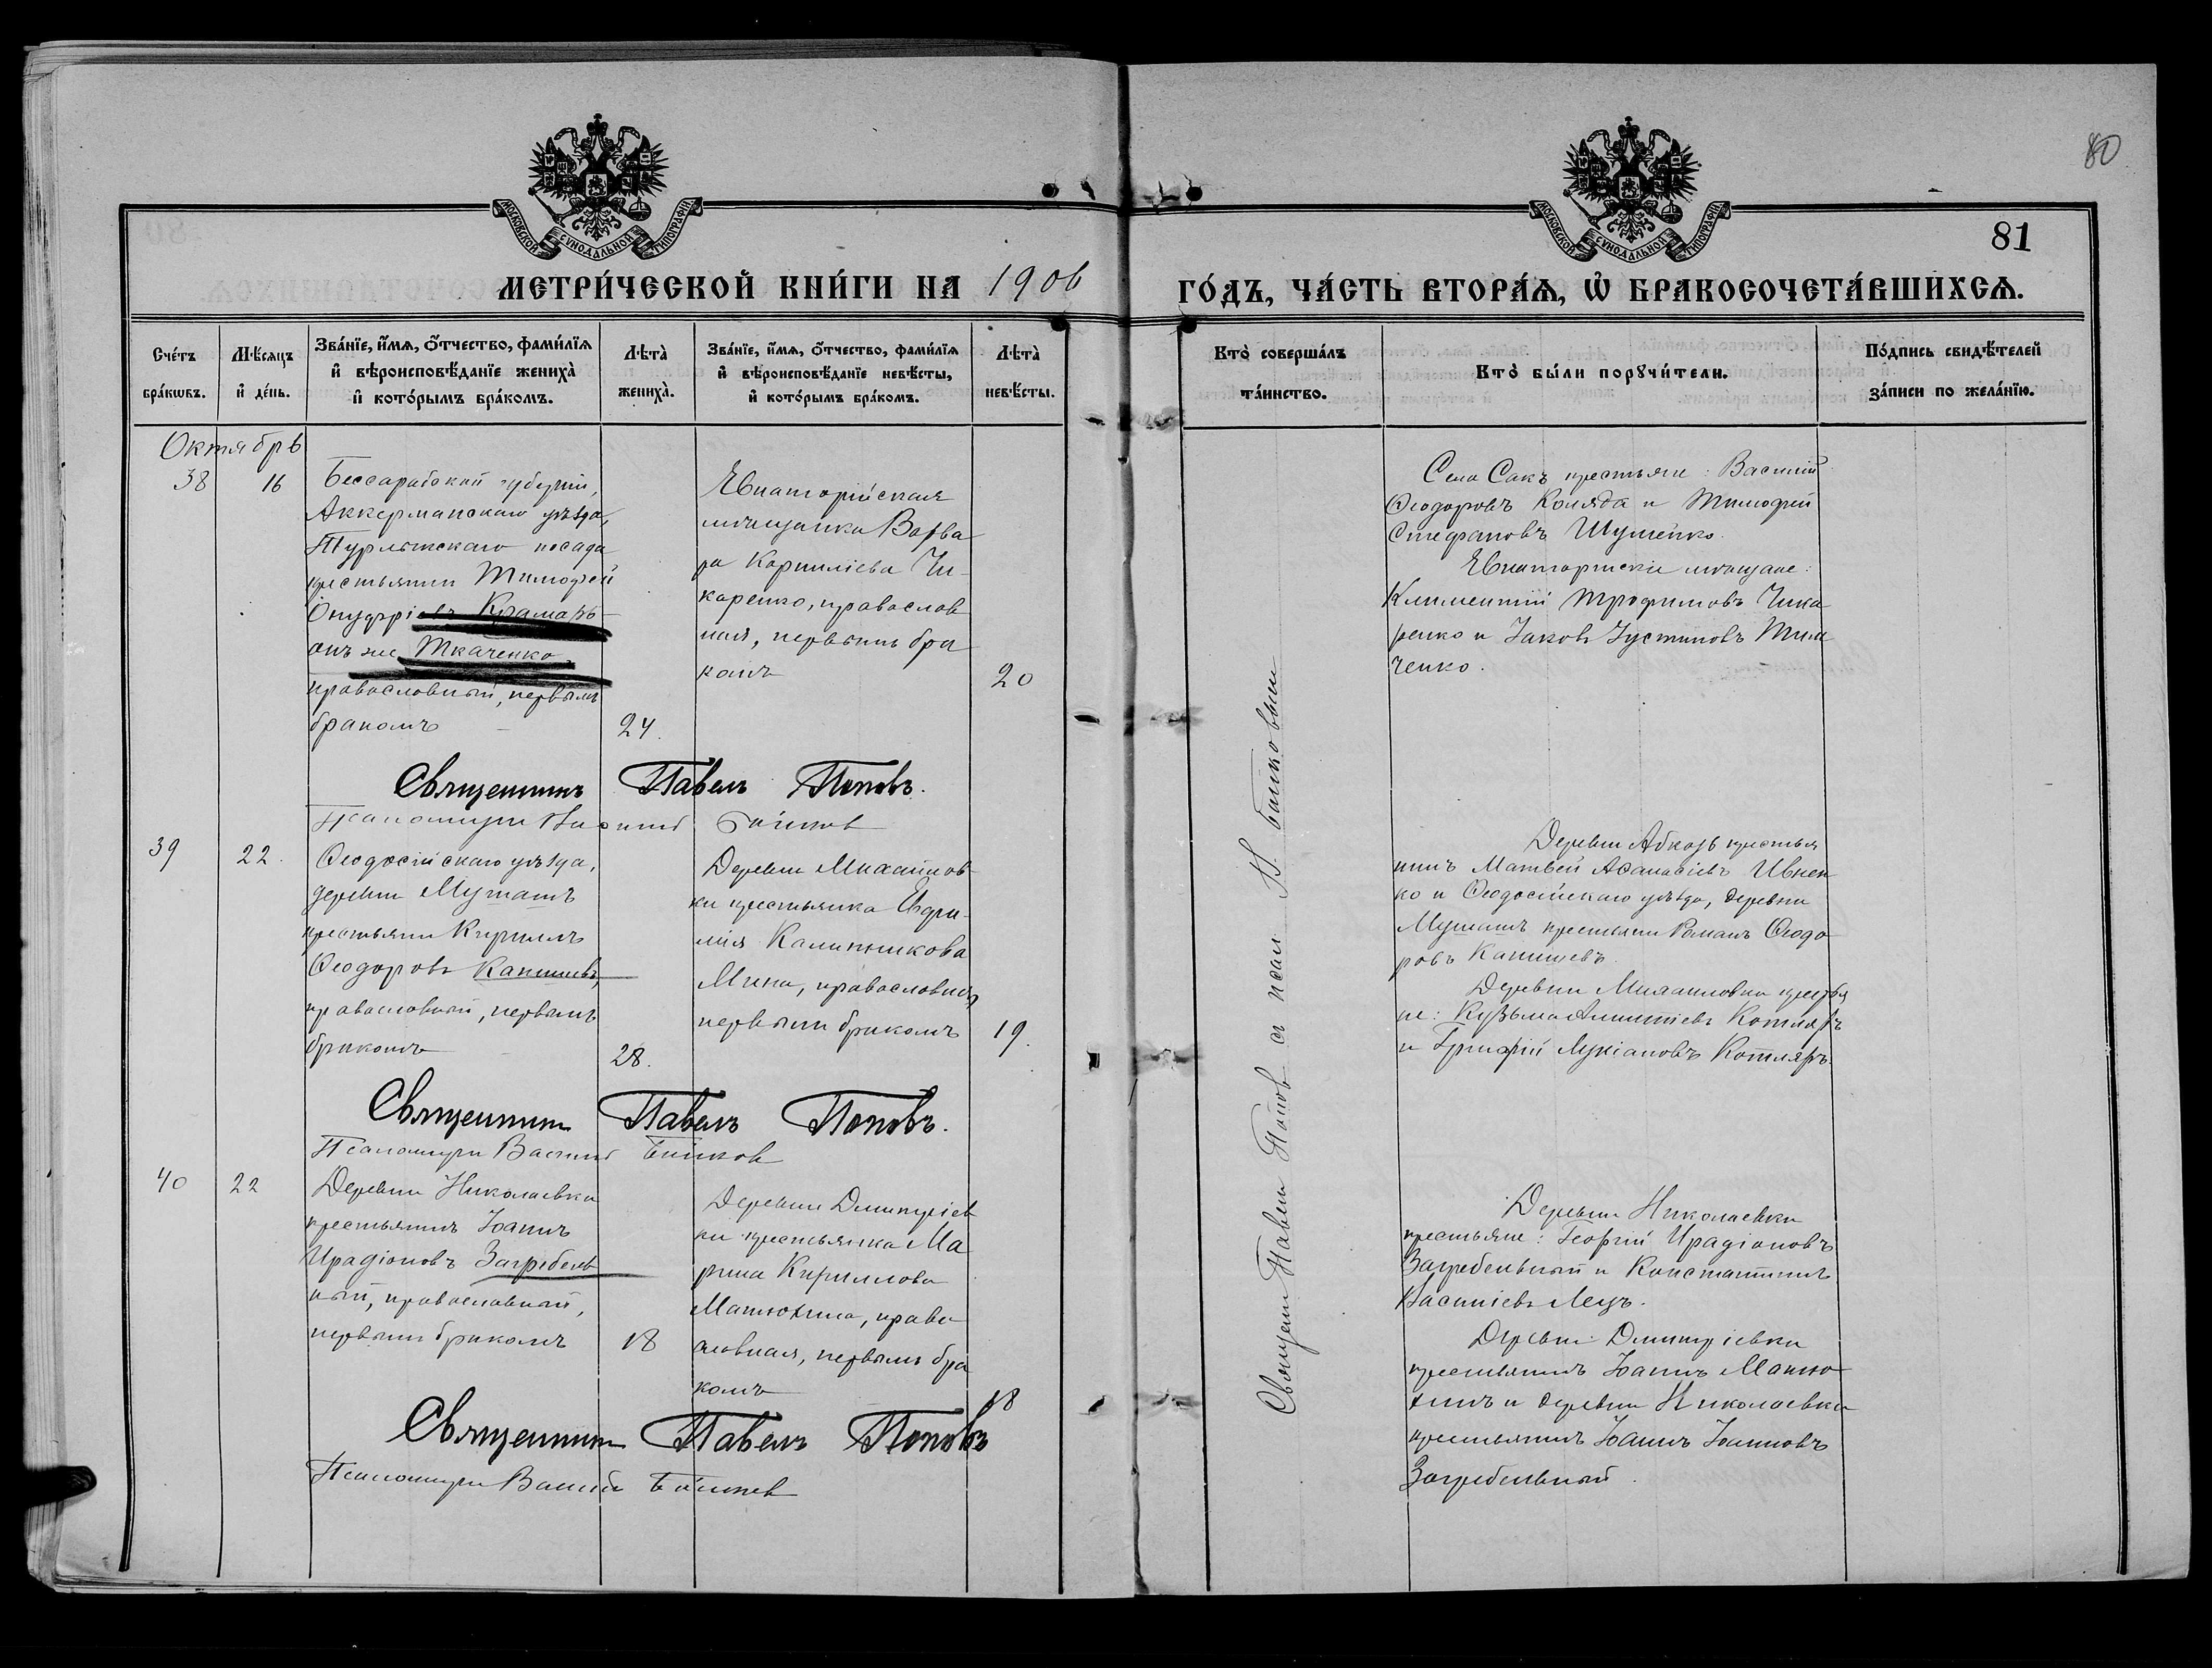 80
81
МОСКОВСКОЙ СУНОДАЛЬНОЙ ТИПОГРАФІИ
МОСКОВСКОЙ СУНОДАЛЬНОЙ ТИПОГРАФІИ
МЕТРИ́ЧЕСКОЙ КНИ́ГИ НА 1906
ГО́ДЪ, ЧА́СТЬ ВТОРА́Ѧ, Ѡ БРАКОСОЧЕТА́ВШИХСѦ.
Счетъ браковъ.
Мѣсяцъ и день.
Званіе, имя, отчество, фамилія и вѣроисповѣданіе жениха и которымъ бракомъ.
Лѣта жениха.
Званіе, имя, отчество, фамилія и вѣроисповѣданіе невѣсты, и которымъ бракомъ.
Лѣта невѣсты.
Кто совершалъ таинство.
Кто были поручители.
Подпись свидѣтелей записи по желанію.
Октябрь
38
16
Бессарабской губерніи,
Аккерманскаго уѣзда,
Турлакскаго посада
крестьянин Тимофей
Онуфріевъ Крамарь
онъ же Ткаченко
православный, первымъ
бракомъ
24.
Евпаторійская
мѣщанка Варва
ра Корниліева Чи-
каренко, православ
ная, первымъ бра
комъ
20
Села Сакъ крестьяне: Василій
Ѳеодоровъ Коляда и Тимофей
Стефановъ Шумейко.
Евпаторійскіе мѣщане:
Климентій Трофимовъ Чика
ренко и Іаковъ Іустиновъ Тим
ченко.
Священникъ Павелъ Поповъ.
Псаломщик Василий Бойков
39
22.
Ѳеодосійскаго уѣзда,
деревни Муташъ
крестьянин Кирилъ
Ѳеодоровъ Канищевъ,
православный, первымъ
бракомъ
28.
Деревни Михайлов
ки крестьянка Евфи-
мія Калинникова
Мина, православная,
первым бракомъ
19.
Деревни Абкозъ крестья
нинъ Матвей Аѳанасіевъ Ивнен
ко и Ѳеодосійскаго уѣзда, деревни
Муташъ крестьянин Романъ Ѳеодо
ровъ Канищевъ.
Деревни Михайловки крестья
не: Кузьма Котляръ
и Лукіановъ Котляръ.
Священник Павелъ Поповъ.
Псаломщик Василий Бойков
40
22
Деревни Николаевки
крестьянинъ Іоаннъ
Ирадіоновъ Загребель
ный, православный,
первым бракомъ
18
Деревни Димитріев
ки крестьянка Ма
рина Кириллова
Матюхина, право
славная, первымъ бра
комъ
18
Деревни Николаевки
крестьяне: Георгій Ирадіоновъ
Загребельный и Константинъ
Василіевъ Лецъ.
Деревни Димитріевки
крестьянинъ Іоаннъ Матю
хинъ и деревни Николаевки
крестьянинъ Іоаннъ Іоанновъ
Загребельный.
Священник Павелъ Поповъ
Псаломщик Василий Бойков
Священ Павел Попов с псал. В. Бойковым